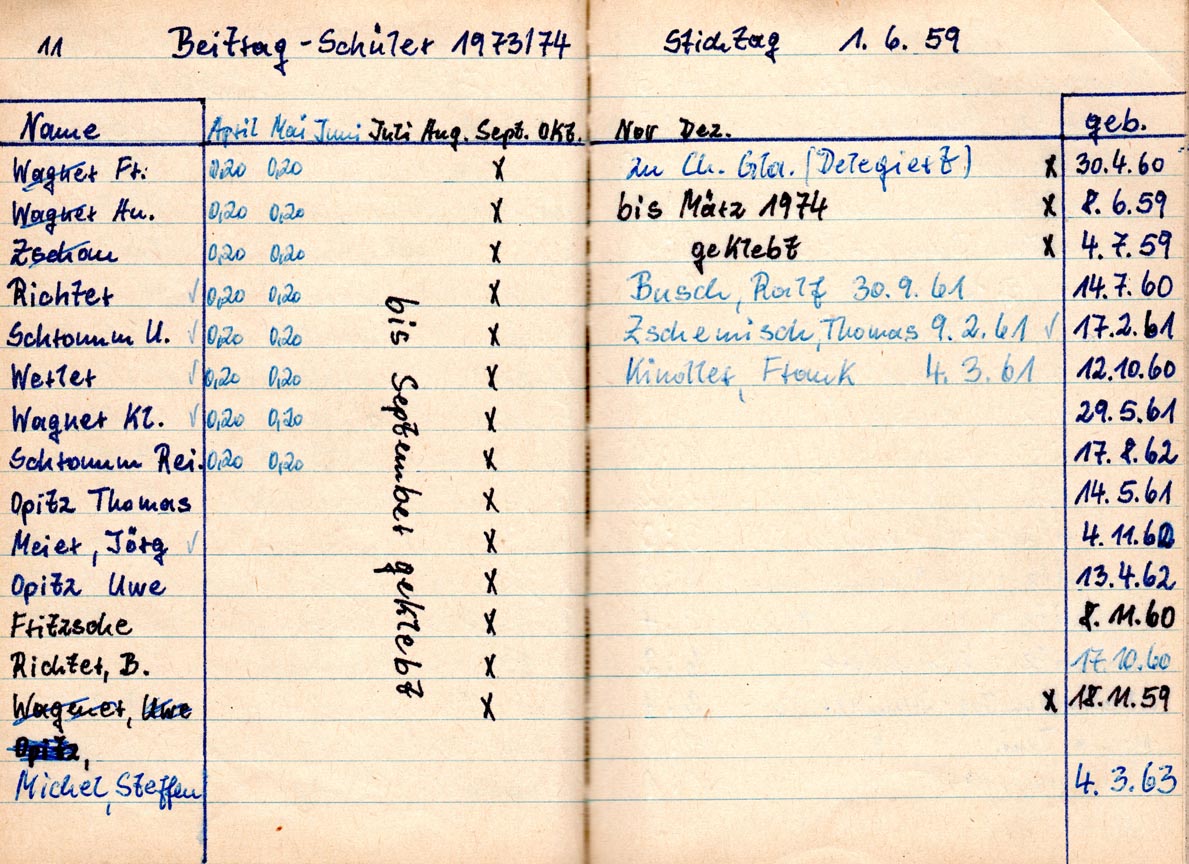 11 Beitrag - Schüler 1973/74 Stichtag 1. 6. 59
Name April Mai Juni Juli Aug. Sept. Okt. Nov Dez. geb.
Wagner Fr. 0,20 0,20 x zu Ch. Gla. (Delegiert) x 30.4.60
Wagner An. 0,20 0,20 x bis März 1974 x 8.6.59
Zschau 0,20 0,20 x geklebt x 4.7.59
Richter ✓ 0,20 0,20 x Busch, Ralf 30.9.61 14.7.60
Schramm U. ✓ 0,20 0,20 x Zschemisch, Thomas 9.2.61 ✓ 17.2.61
Werler ✓ 0,20 0,20 x Kindler, Frank 4.3.61 12.10.60
Wagner Kl. ✓ 0,20 0,20 x 29.5.61
Schramm Rei. 0,20 0,20 x 17.8.62
Opitz Thomas x 14.5.61
Meier, Jörg ✓ x 4.11.62
Opitz Uwe x 13.4.62
Fritzsche x 8.11.60
Richter, B. x 17.10.60
Wagner, Uwe x x 18.11.59
Opitz,
Michel, Steffen 4.3.63
bis September geklebt